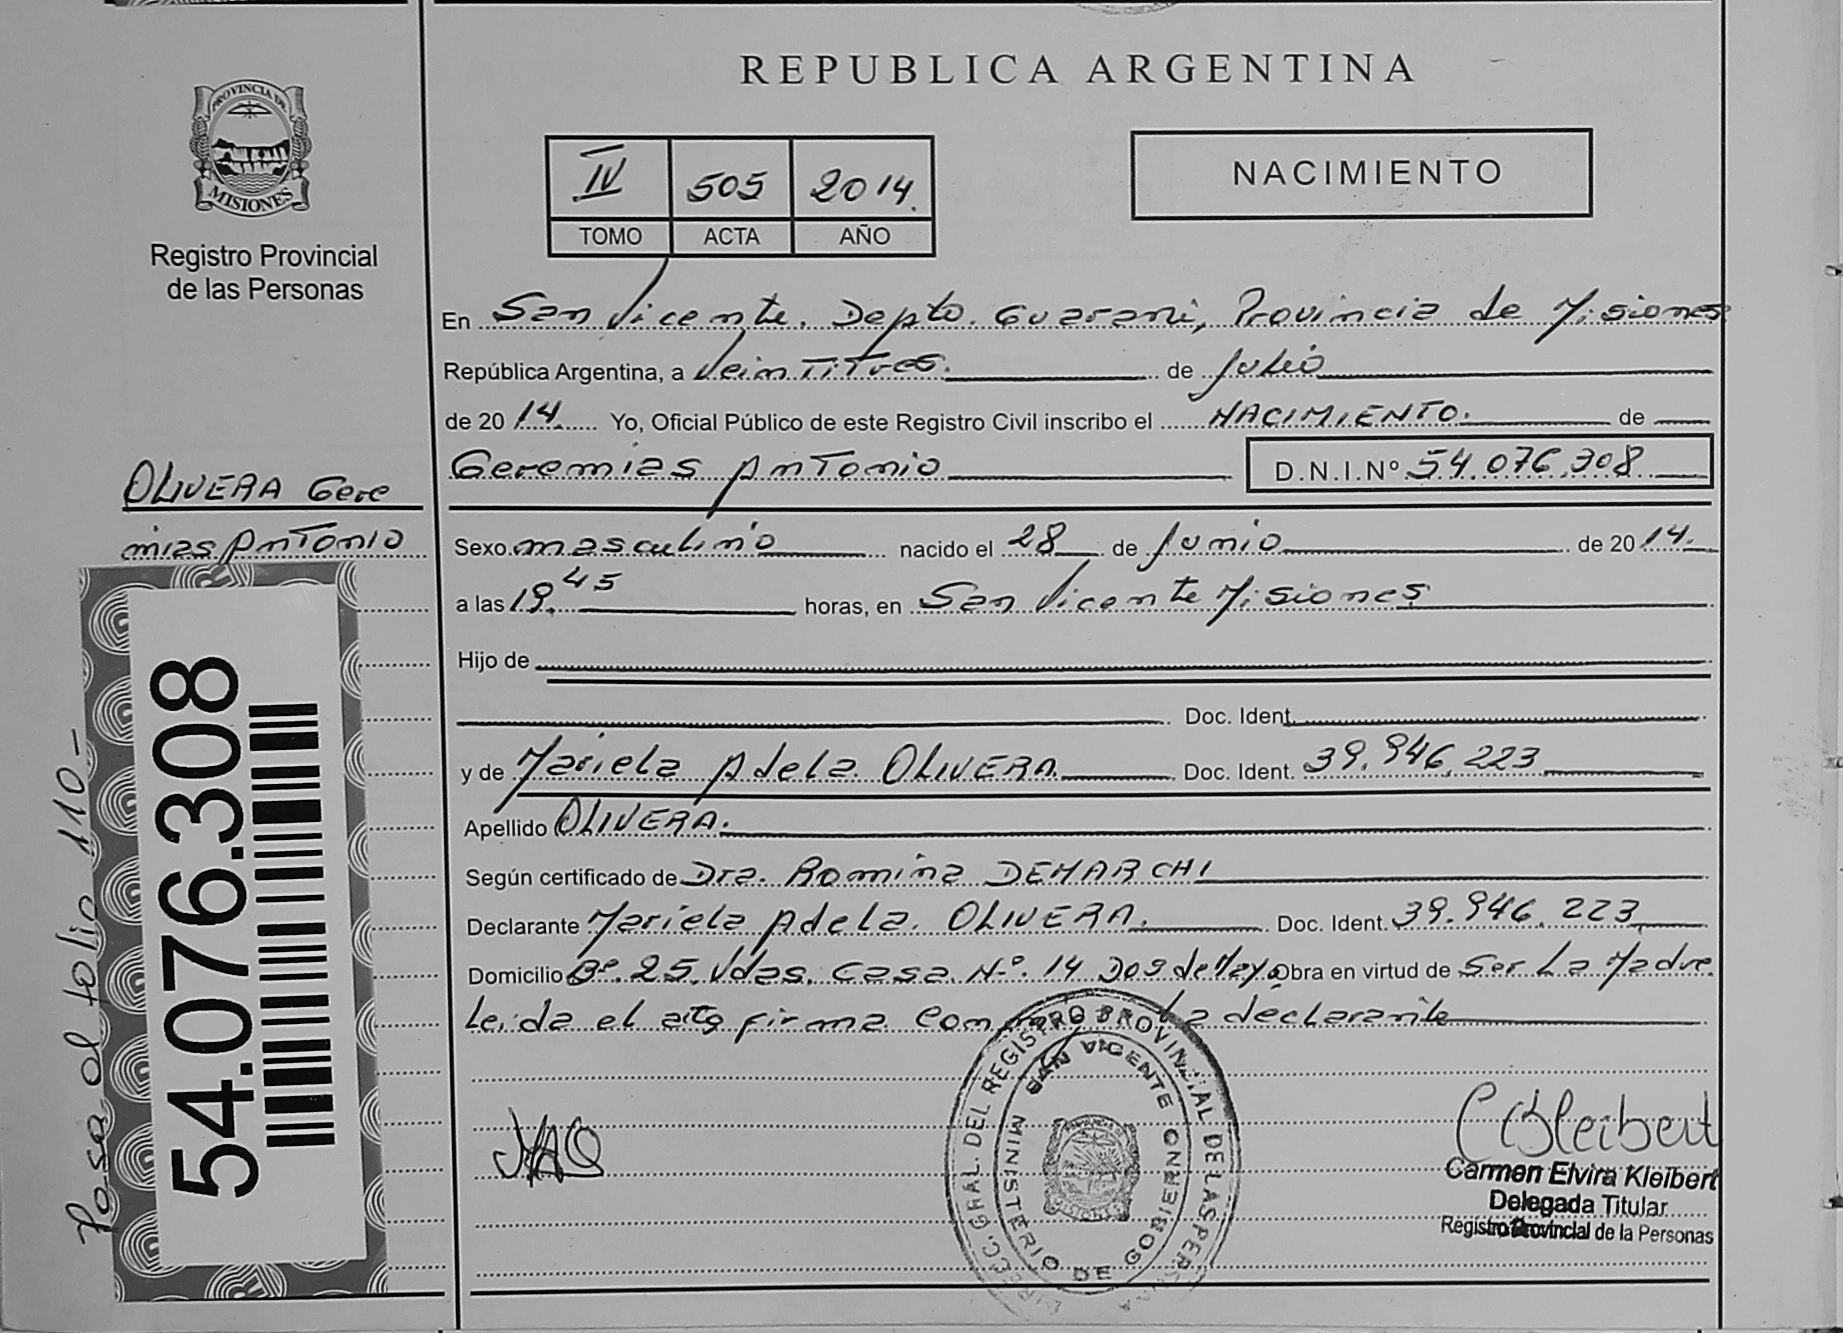 REPUBLICA ARGENTINA
PROVINCIA DE
MISIONES
Registro Provincial
de las Personas
IV 505 2014.
TOMO ACTA AÑO
NACIMIENTO
En San Vicente. Depto. Guarani, Provincia de Misiones
República Argentina, a Veintitres. de Julio
de 2014. Yo, Oficial Público de este Registro Civil inscribo el NACIMIENTO. de
Geremias Antonio D.N.I.Nº 54.076.308
OLIVERA Gere
mias Antonio
Sexo masculino nacido el 28 de Junio de 2014.
a las 19.45 horas, en San Vicente Misiones
Hijo de
Doc. Ident.
y de Mariela Adela OLIVERA Doc. Ident. 39.946.223
Apellido OLIVERA.
Según certificado de Dra. Romina DEMARCHI
Declarante Mariela Adela. OLIVERA. Doc. Ident. 39.946.223
Domicilio Bº. 25. Vdas. Casa Nº. 14 Dos de Mayo Obra en virtud de Ser La Madre
Leida el acta firma la declarante
54.076.308
Pasa al folio 110-
DIRECC. GRAL. DEL REGISTRO PROVINCIAL DE LAS PERSONAS
SAN VICENTE
MINISTERIO DE GOBIERNO
CBKleibert
Carmen Elvira Kleibert
Delegada Titular
Registro Provincial de la Personas